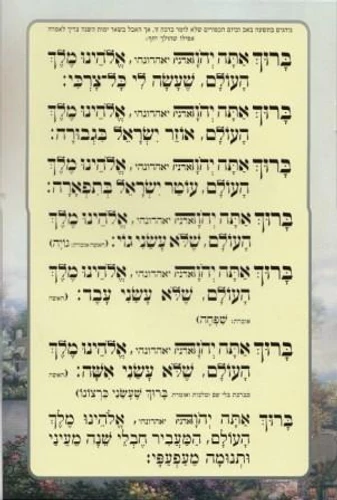 נוהגים בתשעה באב וביום הכפורים שלא לומר ברכה זו, אך האבל בשאר ימות השנה צריך לאמרה
בָּרוּךְ אַתָּה יְהֹוָה יאהדונהי, אֱלֹהֵינוּ מֶלֶךְ
הָעוֹלָם, שֶׁעָשָׂה לִי כָּל־צָרְכִּי:
בָּרוּךְ אַתָּה יְהֹוָה יאהדונהי, אֱלֹהֵינוּ מֶלֶךְ
הָעוֹלָם, אוֹזֵר יִשְׂרָאֵל בִּגְבוּרָה:
בָּרוּךְ אַתָּה יְהֹוָה יאהדונהי, אֱלֹהֵינוּ מֶלֶךְ
הָעוֹלָם, עוֹטֵר יִשְׂרָאֵל בְּתִפְאָרָה:
בָּרוּךְ אַתָּה יְהֹוָה יאהדונהי, אֱלֹהֵינוּ מֶלֶךְ
הָעוֹלָם, שֶׁלֹּא עָשַׂנִי גוֹי: (האשה אומרת: גּוֹיָה)
בָּרוּךְ אַתָּה יְהֹוָה יאהדונהי, אֱלֹהֵינוּ מֶלֶךְ
הָעוֹלָם, שֶׁלֹּא עָשַׂנִי עָבֶד: (האשה
אומרת: שִׁפְחָה)
בָּרוּךְ אַתָּה יְהֹוָה יאהדונהי, אֱלֹהֵינוּ מֶלֶךְ
הָעוֹלָם, שֶׁלֹּא עָשַׂנִי אִשָּׁה: (האשה
מברכת בלי שם ומלכות ואומרת בָּרוּךְ שֶׁעָשַׂנִי כִּרְצוֹנוֹ)
בָּרוּךְ אַתָּה יְהֹוָה יאהדונהי, אֱלֹהֵינוּ מֶלֶךְ
הָעוֹלָם, הַמַּעֲבִיר חֶבְלֵי שֵׁנָה מֵעֵינַי
וּתְנוּמָה מֵעַפְעַפָּי: